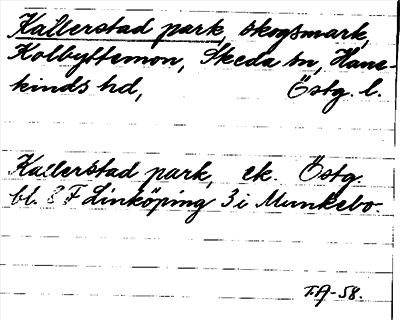 Kallerstad park, skogsmark,
Kolbyttemon, Skeda sn, Hane-
kinds hd, Östg. l.
Kallerstad park, ek. Östg.
bl. 8 F Linköping 3 i Munkebo
F.A-58.